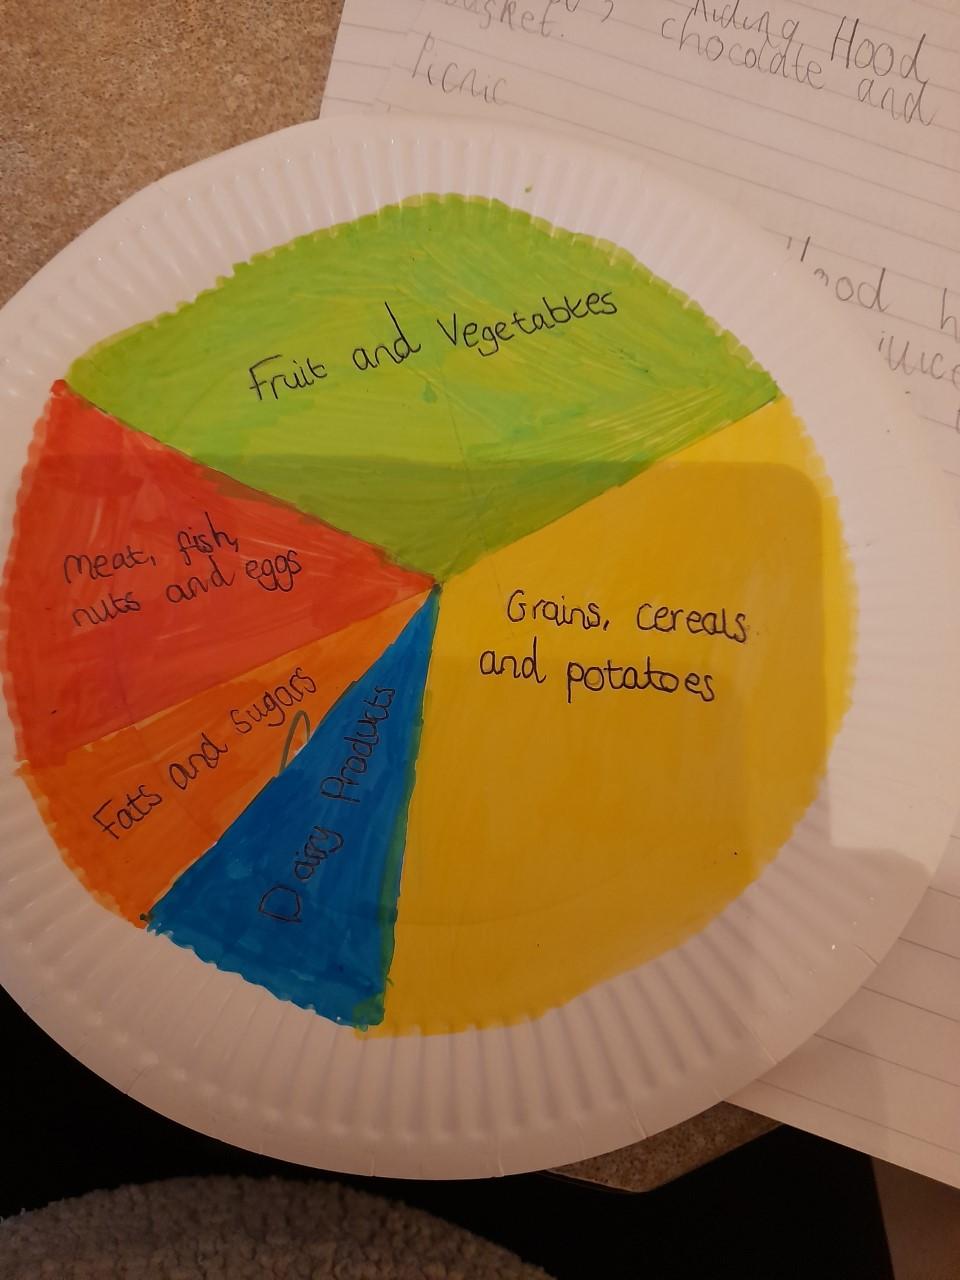 Riding Hood
basket.
chocolate and
Picnic
Hood h
Fruit and Vegetables
Meat, fish,
nuts and eggs
Grains, cereals
and potatoes
Fats and sugars
Dairy Products